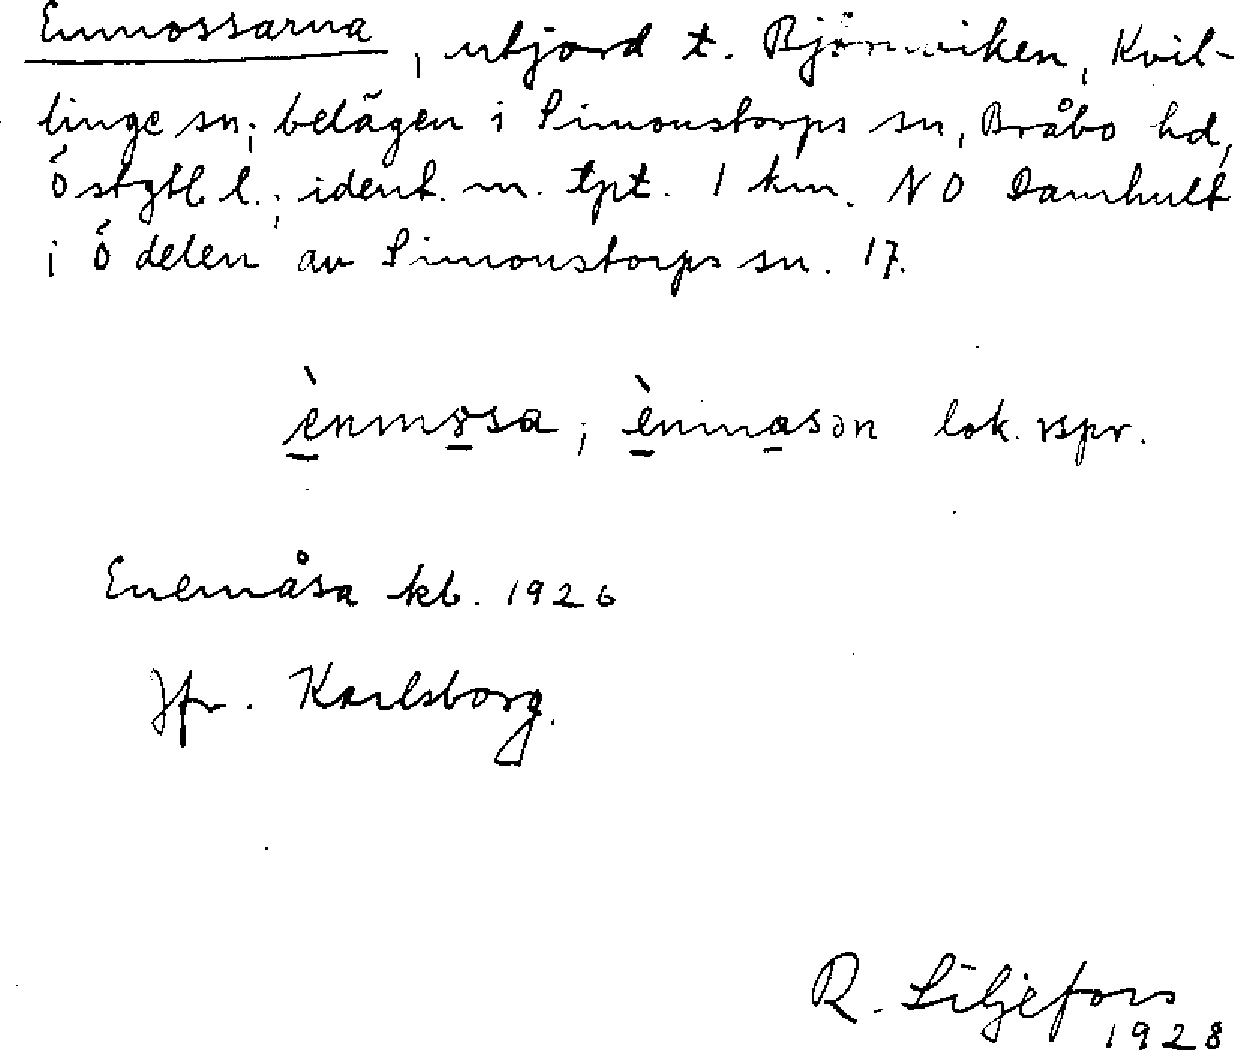 Enmossarna, utjord t. Björnviken, Kvil-
linge sn; belägen i Simonstorps sn, Bråbo hd,
Östgtl l.; ident. m. tpt. 1 km. NO Damhult
i Ö delen av Simonstorps sn. 17.
ènmosa; ènmasən lok. uspr.
Enemåsa kb. 1926
Jfr. Karlsborg.
R. Liljefors
1928